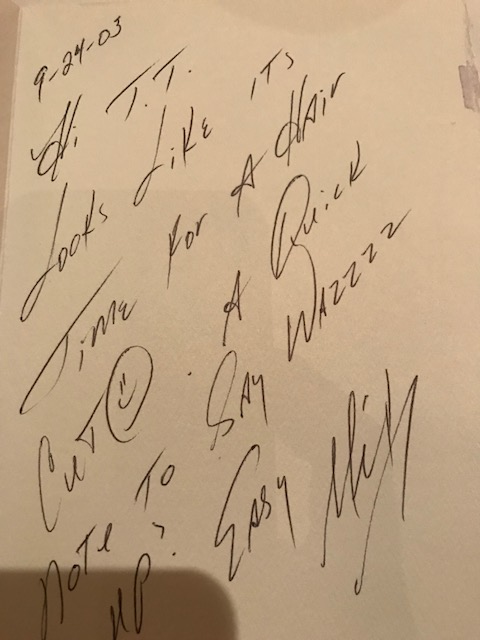 9-24-03
Hi T.T.
Looks Like iTs
Time For A HAir
CuT ☺. A Quick
Note To SAy WAZZZZ
UP? EASy